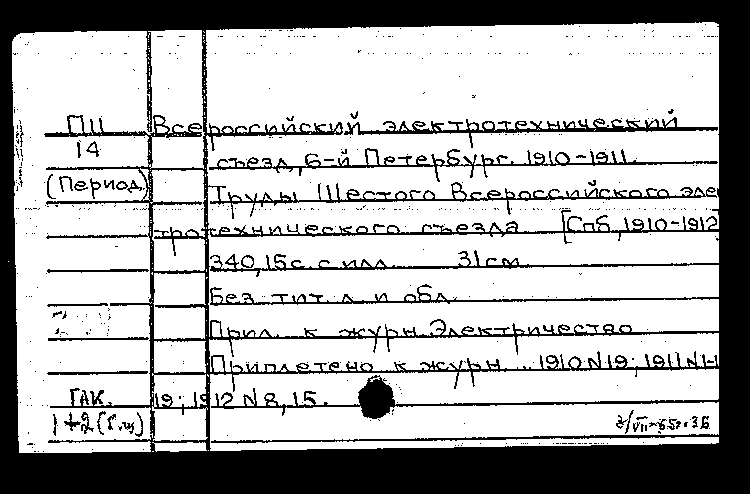 П11 Всероссийский электротехнический
14 съезд, 6-й Петербург. 1910-1911.
(Период) Труды Шестого Всероссийского элек
тротехнического съезда [Спб, 1910-1912
340, 15с. с илл. 31см
Без тит. л и обл.
Прил. к журн. Электричество
Приплетено к журн. .. 1910 N19; 1911 N1-
ГАК. 19; 1912 N 8, 15.
1+2